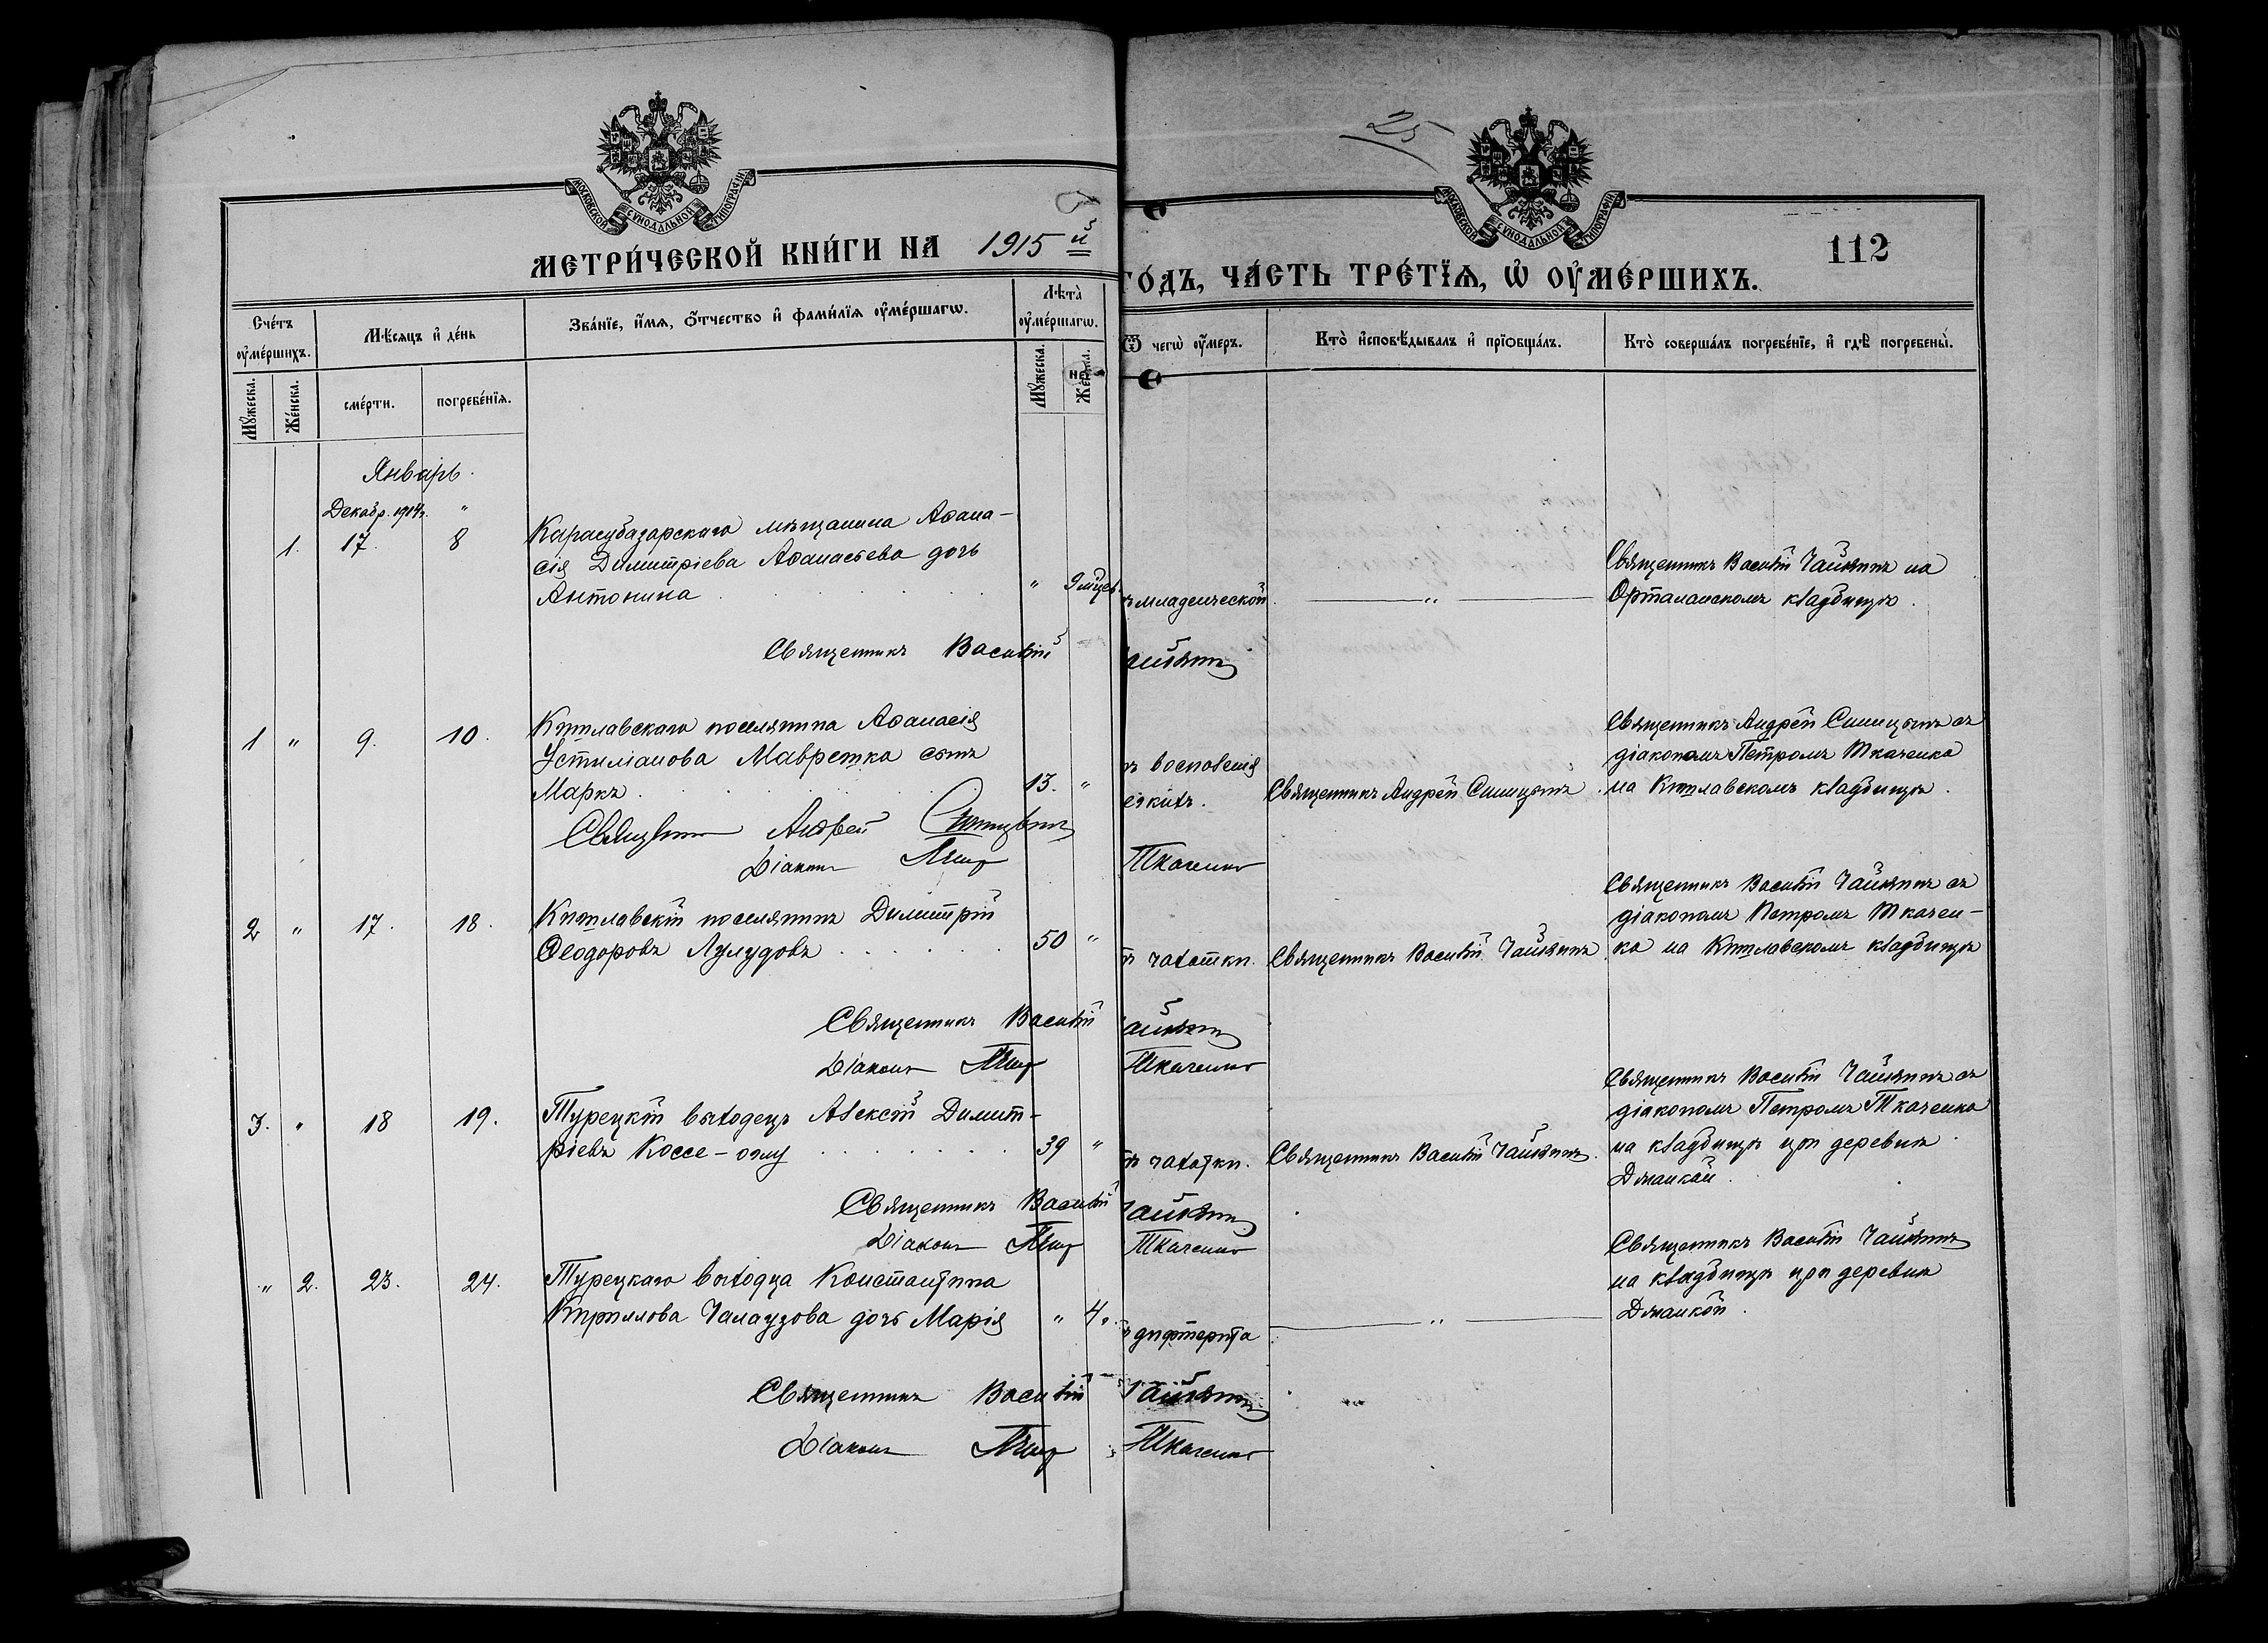 25
МОСКОВСКОЙ СѴНОДАЛЬНОЙ ТИПОГРАФІИ
МОСКОВСКОЙ СѴНОДАЛЬНОЙ ТИПОГРАФІИ
МЕТРИ́ЧЕСКОЙ КНИ́ГИ НА 1915 й
ГО́ДЪ, ЧА́СТЬ ТРЕ́ТЇѦ, Ѡ҆ ОУ҆МЕ́РШИХЪ.
112
Сче́тъ оу҆ме́ршихъ.
Мѣ́сяцъ и҆ де́нь
Зва́нїе, и҆́мѧ, ѻ҆́тчество и҆ фами́лїѧ оу҆ме́ршагѡ.
Лѣ́та оу҆ме́ршагѡ.
Ѿ чегѡ̀ оу҆́меръ.
Кто̀ и҆сповѣ́дывалъ и҆ прїѡбща́лъ.
Кто̀ соверша́лъ погребе́нїе, и҆ гдѣ̀ погребены̀.
Мꙋ́жеска.
Же́нска.
сме́рти.
погребе́нїѧ.
Мꙋ́жеска.
Же́нска.
Январь.
Декабр. 1914г. "
1. 17. 8
Карасубазарскаго мѣщанина Аѳана-
сія Димитріева Аѳанасьева дочь
Антонина " 9 мѣсяц.
младенческой
"
Священникъ Василій Чайкинъ на
Орталанскомъ кладбищѣ.
Священникъ Василій Чайкинъ
1 " 9. 10.
Кутлавскаго поселянина Аѳанасія
Устиліанова Мавретка сынъ
Маркъ 13. "
воспаленія
легкихъ.
Священникъ Андрей Синицынъ.
Священникъ Андрей Синицынъ съ
діакономъ Петромъ Ткаченко
на Кутлавскомъ кладбищѣ.
Священникъ Андрей Синицынъ
Діаконъ Петръ Ткаченко
2 " 17. 18.
Кутлавскій поселянинъ Димитрій
Ѳеодоровъ Лулудовъ 50 "
чахотки.
Священникъ Василій Чайкинъ
Священникъ Василій Чайкинъ съ
діакономъ Петромъ Ткачен-
ко на Кутлавскомъ кладбищѣ
Священникъ Василій Чайкинъ
Діаконъ Петръ Ткаченко
3. " 18 19.
Турецкій выходецъ Алексій Димит-
ріевъ Коссе-оглу 39 "
чахотки.
Священникъ Василій Чайкинъ.
Священникъ Василій Чайкинъ съ
діакономъ Петромъ Ткаченко
на кладбищѣ при деревнѣ
Джанкой.
Священникъ Василій Чайкинъ
Діаконъ Петръ Ткаченко
" 2. 23. 24.
Турецкаго выходца Константина
Кириллова Чалаузова дочь Марія " 4.
дифтерита
"
Священникъ Василій Чайкинъ
на кладбищѣ при деревнѣ
Джанкой.
Священникъ Василій Чайкинъ
Діаконъ Петръ Ткаченко